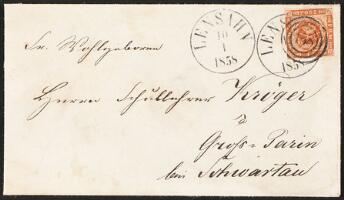 LENSAHN
10
1
1858
LENSA
1858
Sr. Wohlgeboren
Herrn Schullehrer Kröger
Gross-Parin
bei Schwartau